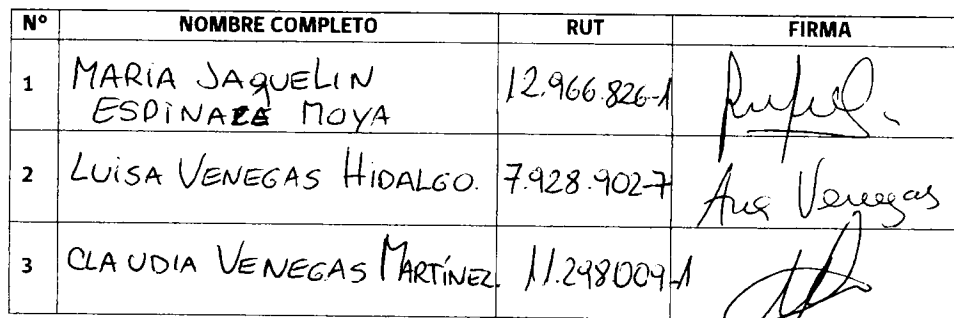 Nº NOMBRE COMPLETO RUT FIRMA
1 MARIA JAQUELIN 12.966.826-1
ESPINAZE MOYA
2 LUISA VENEGAS HIDALGO. 7.928.902-7 Ana Venegas
3 CLAUDIA VENEGAS MARTÍNEZ. 11.298009-1